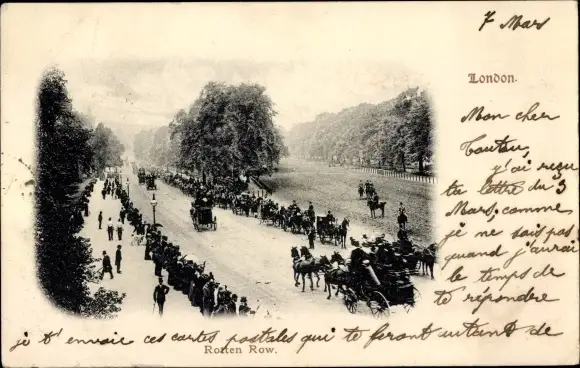 7 Mars
London.
Mon cher
Toutou, j'ai reçu
ta lettre du 3
Mars, comme
je ne sais pas
quand j'aurai
le temps de
te répondre
je t'envoie ces cartes postales qui te feront autant de
Rotten Row.